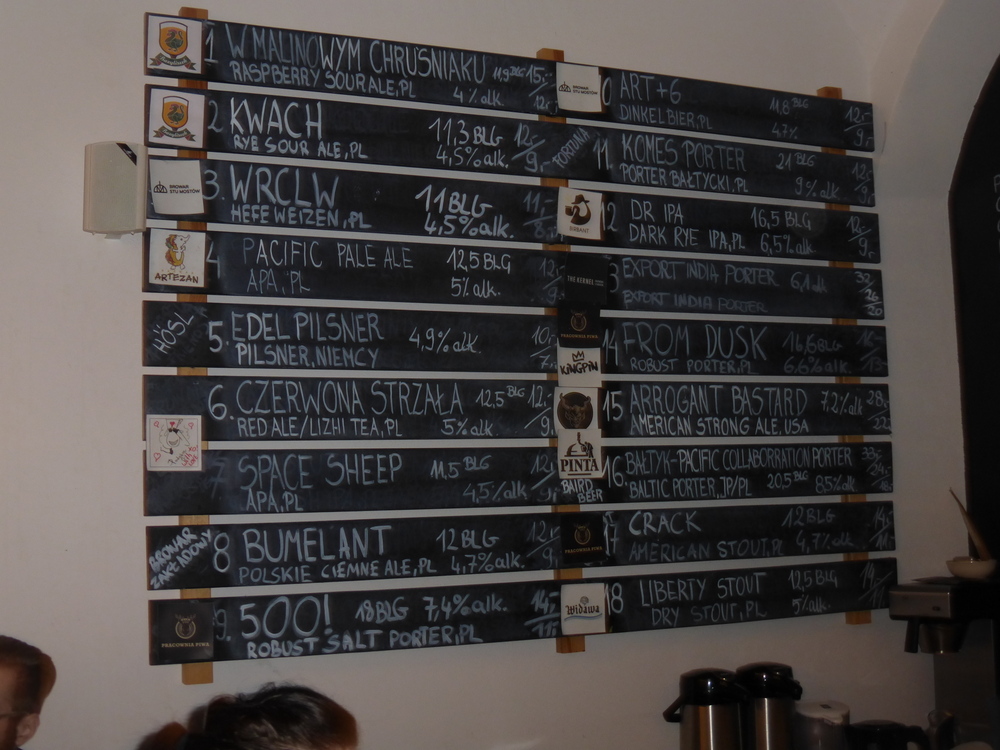 1 W MALINOWYM CHRUŚNIAKU 11,9 BLG 15,-
RASPBERRY SOUR ALE, PL 4% alk. 12,-
2 KWACH 11,3 BLG 12,-
RYE SOUR ALE, PL 4,5% alk. 9,-
BROWAR STU MOSTÓW
3. WRCLW 11 BLG 11,-
HEFEWEIZEN, PL 4,5% alk. 8,-
ARTEZAN
4 PACIFIC PALE ALE 12,5 BLG 12,-
APA, PL 5% alk. 9,-
HÖSL
5. EDEL PILSNER 4,9% alk. 10,-
PILSNER, NIEMCY 7,-
6. CZERWONA STRZAŁA 12,5 BLG 12,-
RED ALE/LIZHI TEA, PL 5% alk. 9,-
7 SPACE SHEEP 11,5 BLG 12,-
APA, PL 4,5% alk 9,-
BROWAR ZAKŁADOWY
8 BUMELANT 12 BLG 12,-
POLSKIE CIEMNE ALE, PL 4,7% alk. 9,-
PRACOWNIA PIWA
9. 500! 18 BLG 7,4% alk. 14,-
ROBUST SALT PORTER, PL 11,-
BROWAR STU MOSTÓW
0 ART+6 11,8 BLG 12,-
DINKELBIER, PL 4,7% 9,-
FORTUNA
11. KOMES PORTER 21 BLG 12,-
PORTER BAŁTYCKI, PL 9% alk. 9,-
BIRBANT
2 DR IPA 16,5 BLG 12,-
DARK RYE IPA, PL 6,5% alk. 9,-
THE KERNEL
3 EXPORT INDIA PORTER 6,1 alk 32/26/20
EXPORT INDIA PORTER
PRACOWNIA PIWA
KINGPIN
14 FROM DUSK 16,6 BLG
ROBUST PORTER, PL 6,6% alk.
15 ARROGANT BASTARD 7,2% alk 28,-
AMERICAN STRONG ALE, USA 22,-
PINTA
BAIRD BEER
16. BAŁTYK-PACIFIC COLLABORRATION PORTER
BALTIC PORTER, JP/PL 20,5 BLG 8,5% alk
PRACOWNIA PIWA
17 CRACK 12 BLG 14,-
AMERICAN STOUT, PL 4,7% alk 11,-
Widawa
18 LIBERTY STOUT 12,5 BLG 14,-
DRY STOUT, PL 5% alk. 11,-